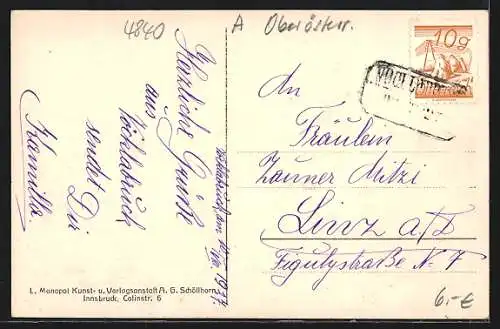 4840
A Oberösterr.
10g
Herzliche Grüße
aus
Vöcklabruck
sendet Dir
Kamilla.
Vöcklabruck am 1927
An
Fräulein
Zauner Mitzi
Linz a/D
Figulystraße N. 7
L. Monopol Kunst- u. Verlagsanstalt A. G. Schöllhorn
Innsbruck, Colinstr. 6
6,-€